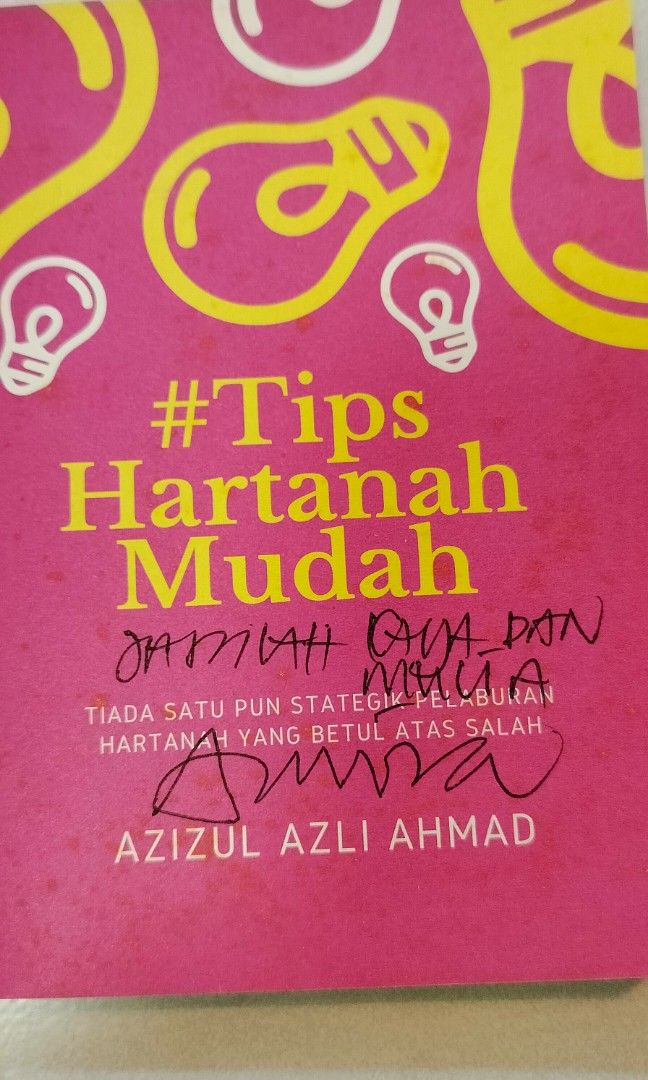 #Tips
Hartanah
Mudah
JADILAH KAYA DAN
MULIA
TIADA SATU PUN STATEGIK PELABURAN
HARTANAH YANG BETUL ATAS SALAH
AZIZUL AZLI AHMAD